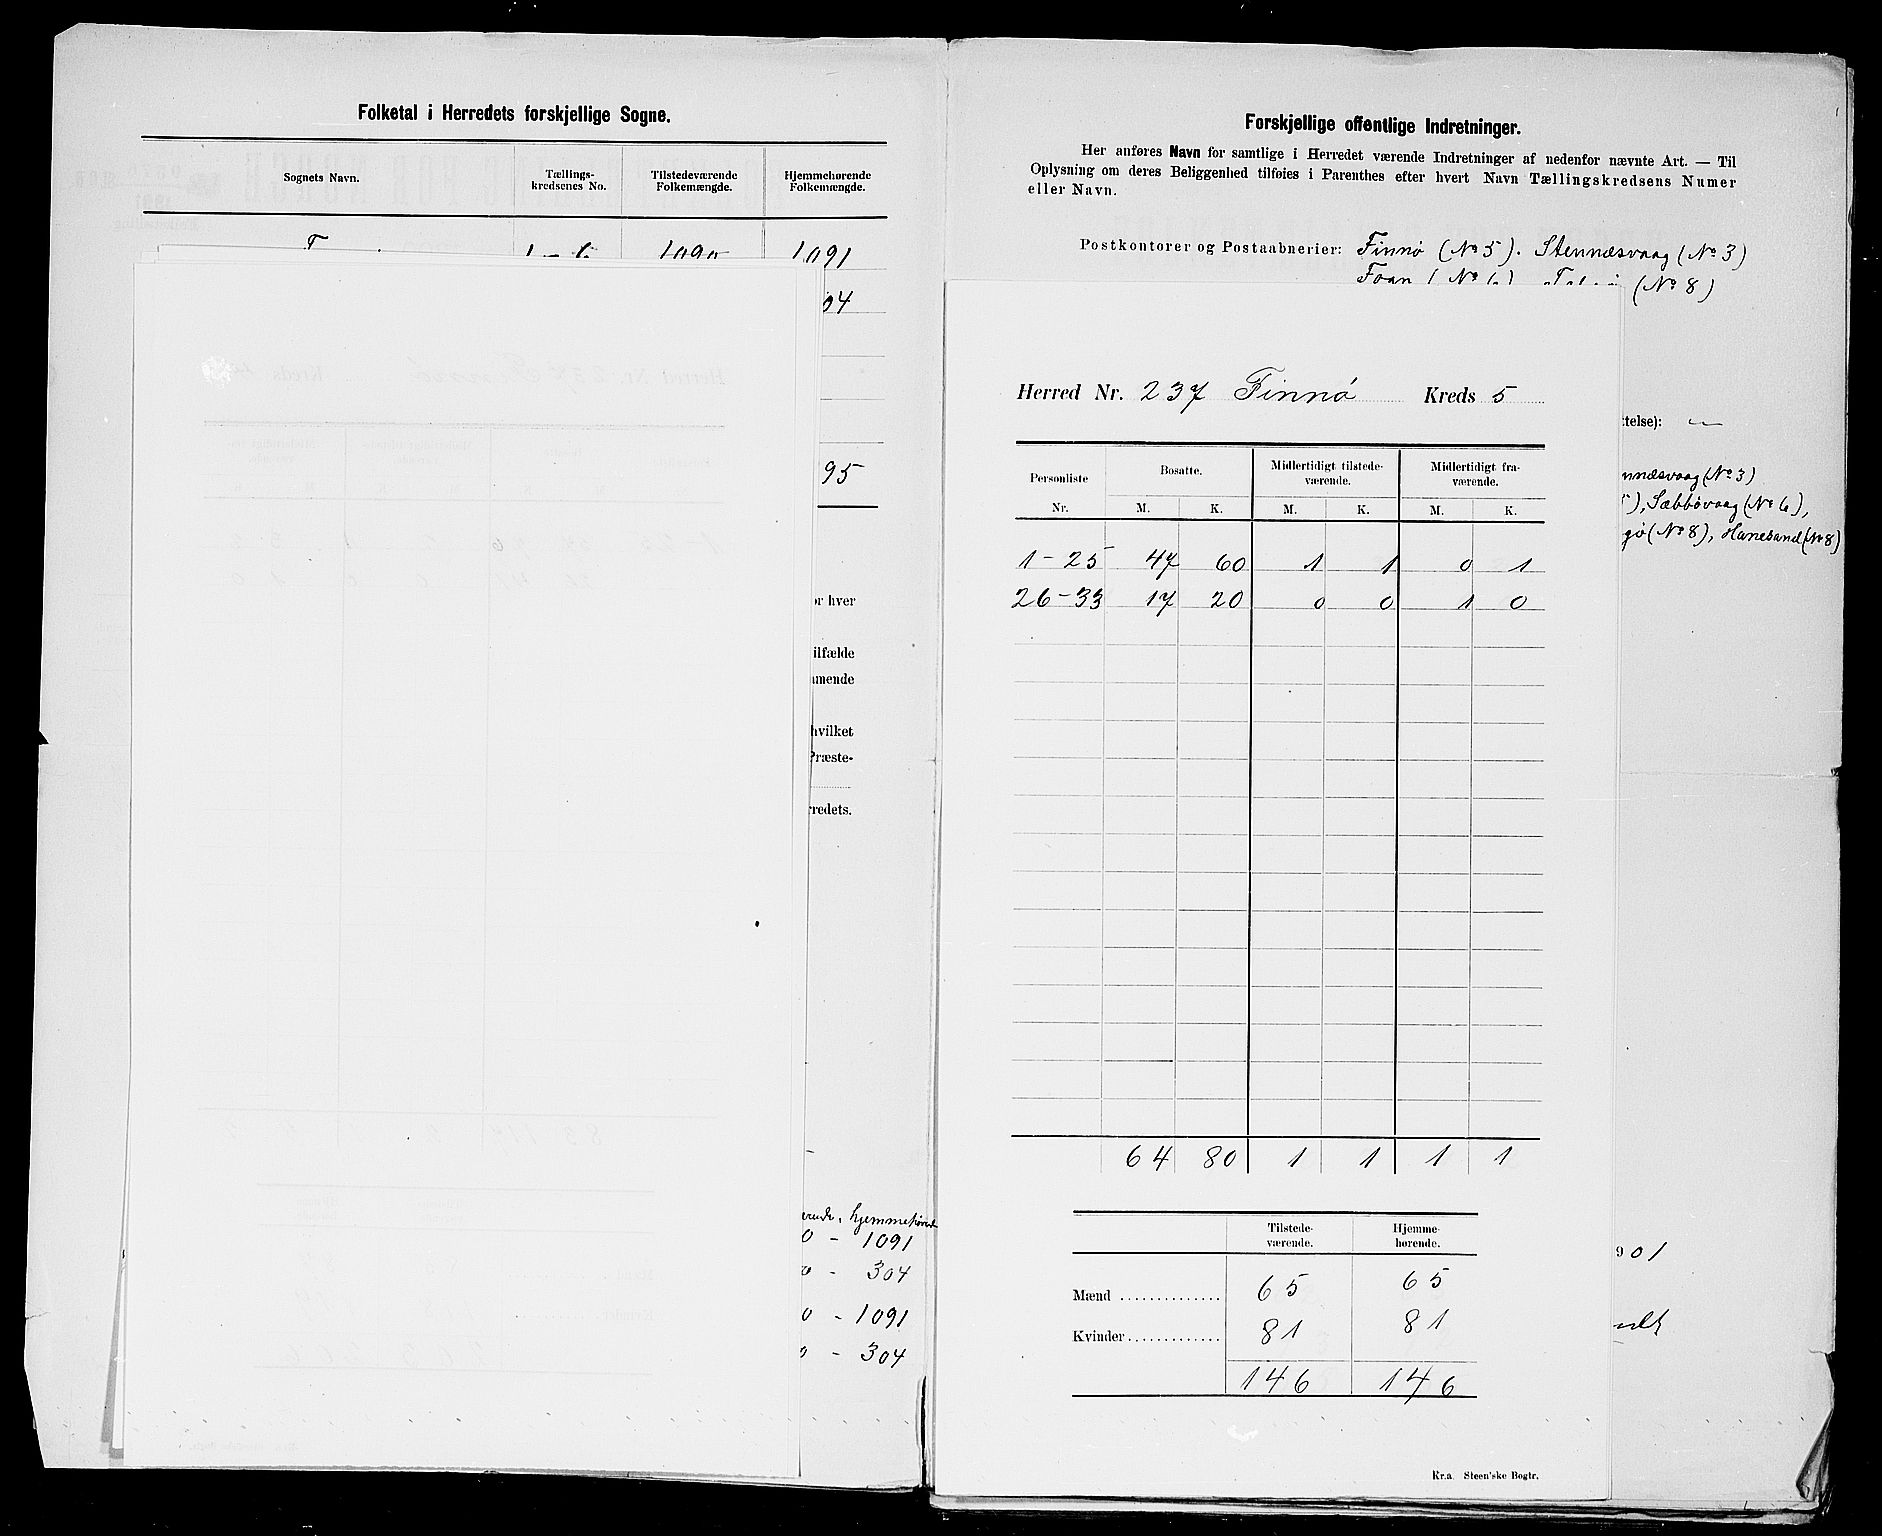 Folketal i Herredets forskjellige Sogne.
Sognets Navn. Tællings-kredsenes No. Tilstedeværende Folkemængde. Hjemmehørende Folkemængde.
1-6 1090 1091
04
95
or hver
ilfælde
mende
hvilket
Præste-
redets.
erende, hjemmehørende
0 - 1091
0 - 304
0 - 1091
0 - 304
Forskjellige offentlige Indretninger.
Her anføres Navn for samtlige i Herredet værende Indretninger af nedenfor nævnte Art. — Til
Oplysning om deres Beliggenhed tilføies i Parenthes efter hvert Navn Tællingskredsens Numer
eller Navn.
Postkontorer og Postaabnerier: Finnø (No 5). Stennæsvaag (No 3)
Foan (No 6), (No 8)
ttelse): —
nnæsvaag (No 3)
), Sæbbøvaag (No 6),
gø (No 8), Hanesand (No 8)
Herred Nr. 237 Finnø Kreds 5
Personliste Bosatte. Midlertidigt tilstede-værende. Midlertidigt fra-værende.
Nr. M. K. M. K. M. K.
1-25 47 60 1 1 0 1
26-33 17 20 0 0 1 0
64 80 1 1 1 1
Tilstede-værende. Hjemme-hørende.
Mænd .............. 65 65
Kvinder............. 81 81
146 146
Kr.a. Steen'ske Bogtr.
901